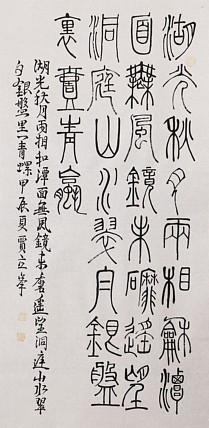 湖光秋月兩相龢潭
面無風鏡未磨遙望
洞庭山水翠白銀盤
裏壹青蠃
湖光秋月兩相和潭面無風鏡未磨遙望洞庭山水翠
白銀盤里一青螺甲辰夏賈立峯